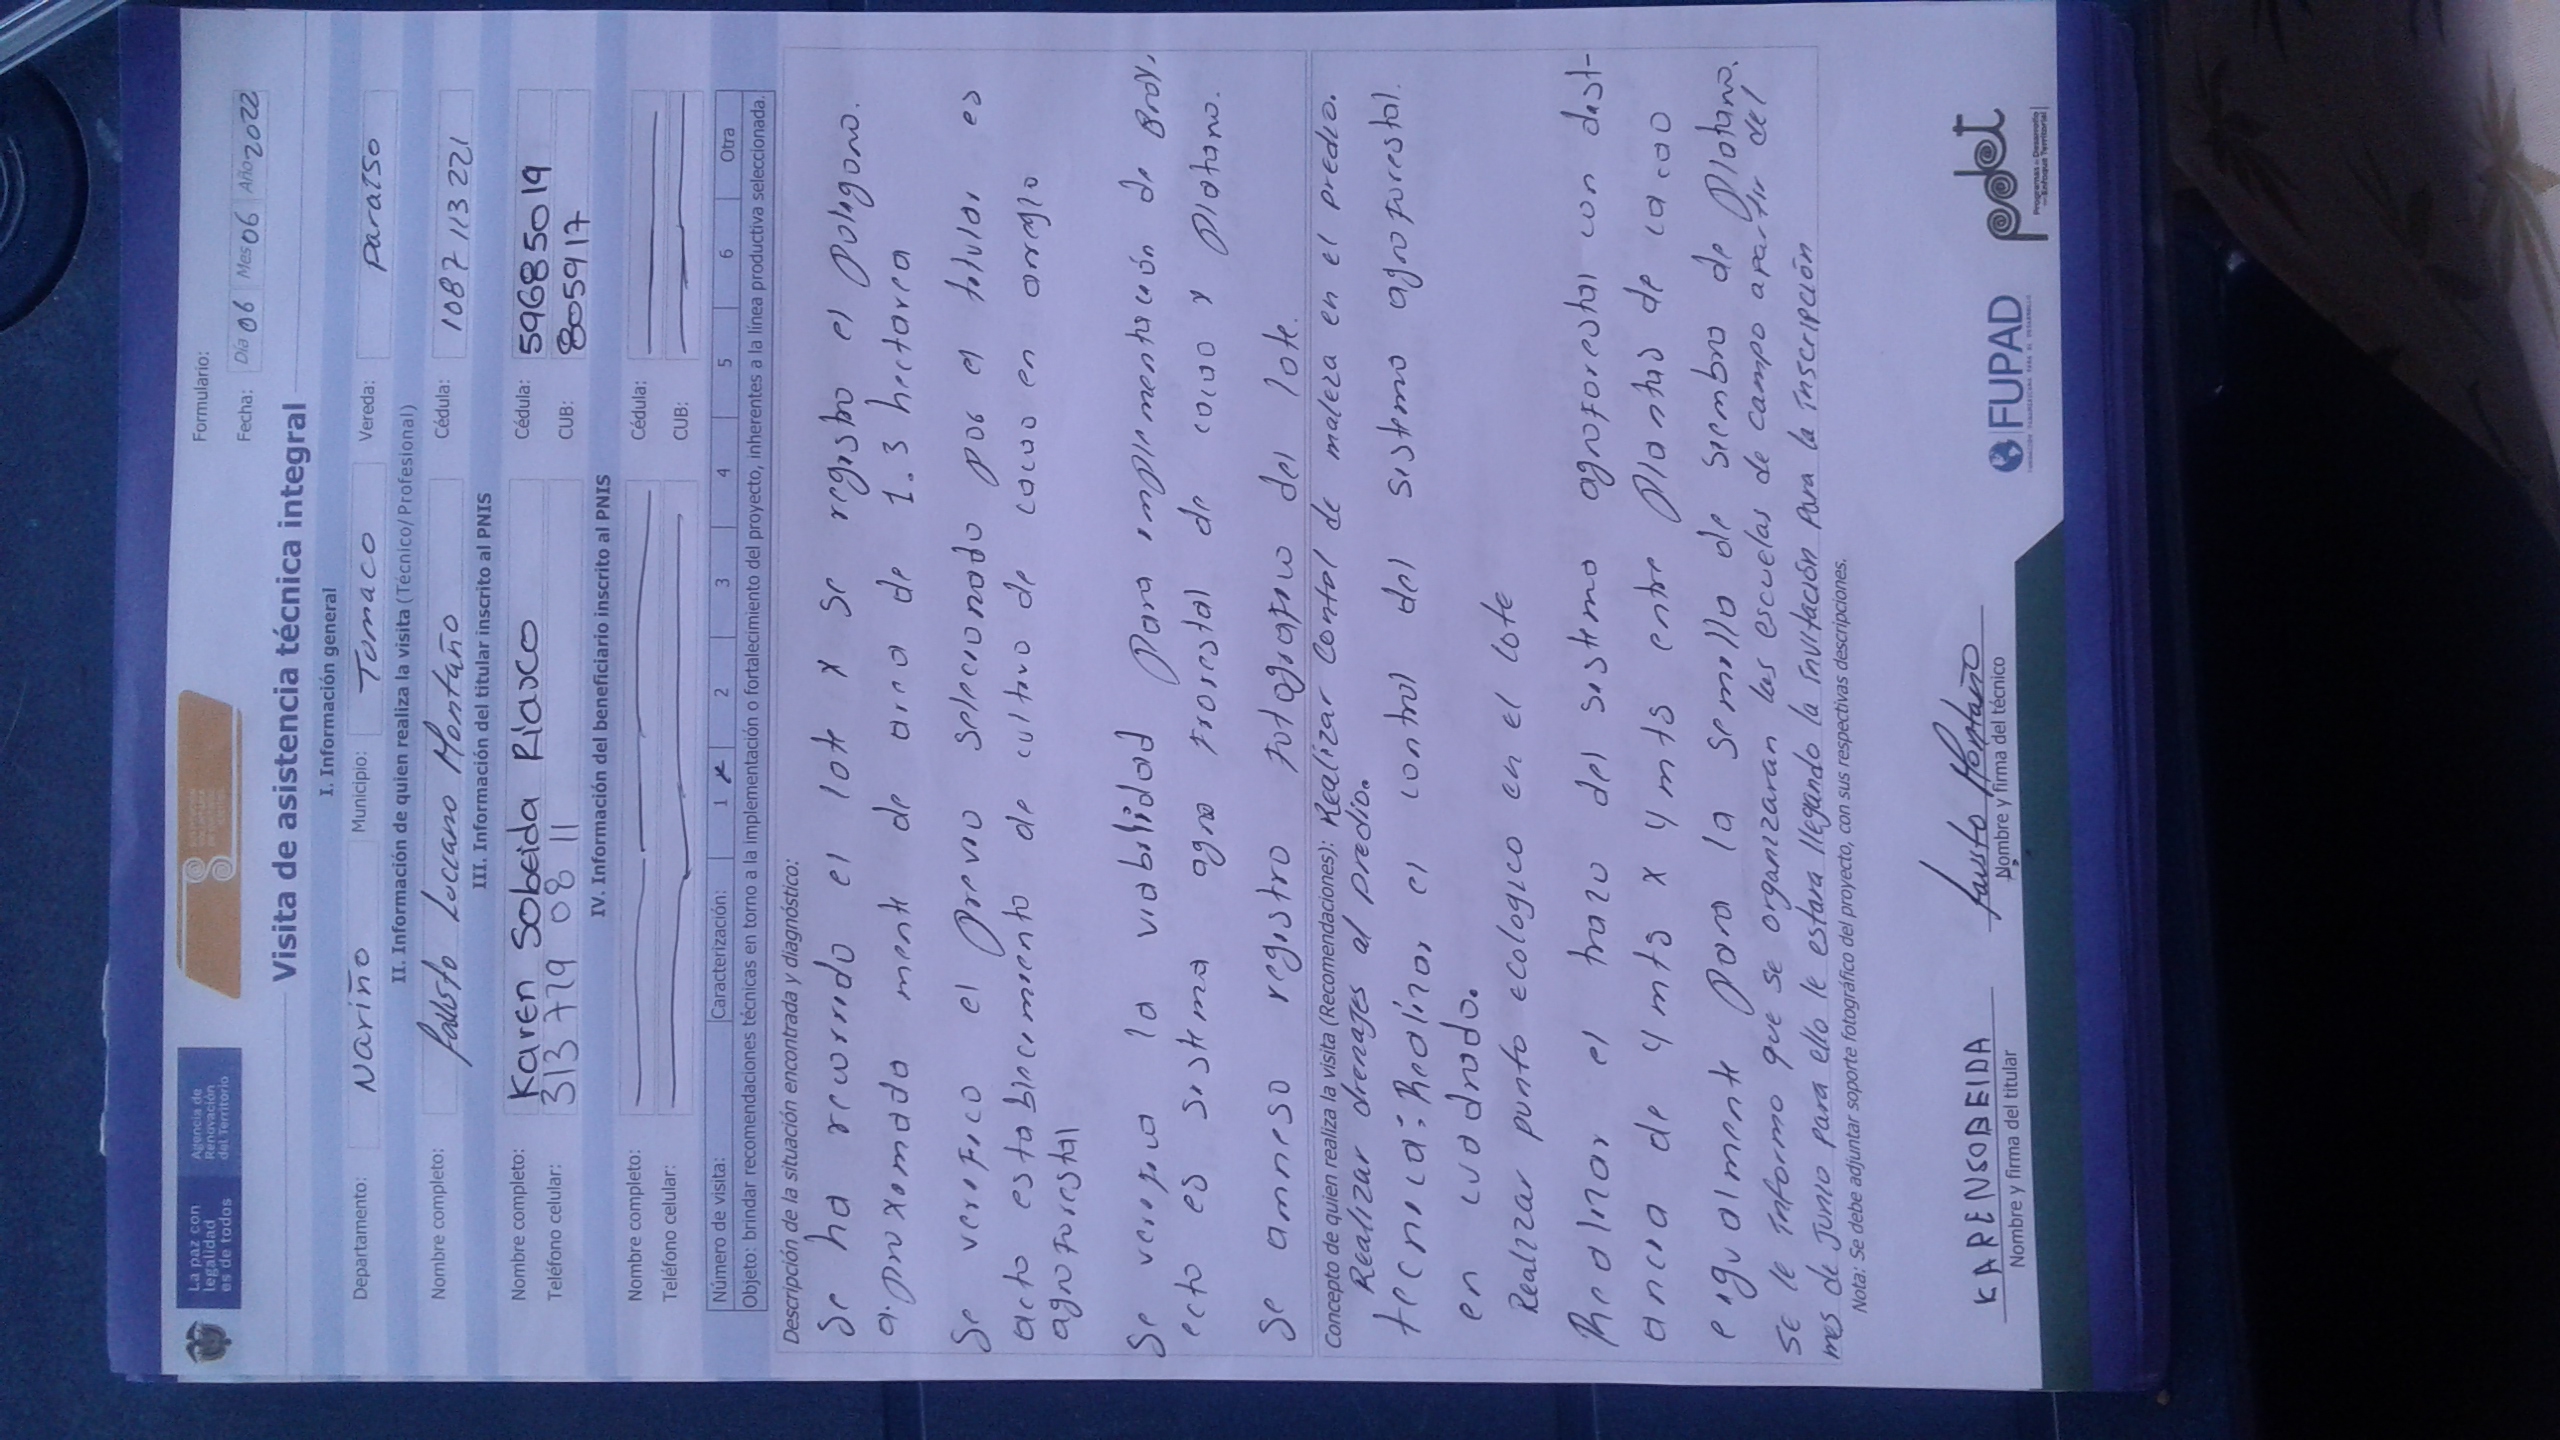 La paz con
legalidad
es de todos
Agencia de
Renovación
del Territorio
Formulario:
Fecha: Día 06 Mes 06 Año 2022
Visita de asistencia técnica integral
I. Información general
Departamento: Nariño Municipio: Tumaco Vereda: Paraíso
II. Información de quien realiza la visita (Técnico/Profesional)
Nombre completo: Fausto Luccano Montaño Cédula: 1087 113 221
III. Información del titular inscrito al PNIS
Nombre completo: Karen Sobeida Riasco Cédula: 59685019
Teléfono celular: 313 779 08 11 CUB: 8059 17
IV. Información del beneficiario inscrito al PNIS
Nombre completo: Cédula:
Teléfono celular: CUB:
Número de visita: Caracterización: 1 x 2 3 4 5 6 Otra
Objeto: brindar recomendaciones técnicas en torno a la implementación o fortalecimiento del proyecto, inherentes a la línea productiva seleccionada.
Descripción de la situación encontrada y diagnóstico:
Se ha recorrido el lote y se registro el poligono.
aproxomada mente de area de 1.3 hectarea
Se verifico el previo seleccionado por el titular es
acto establecimiento de cultivo de cacao en arreglo
agroforestal
Se verifica la viabilidad para implementación de Proy,
ecto es sistema agro forestal de cacao y platano.
Se anneso registro fotografico del lote.
Concepto de quien realiza la visita (Recomendaciones): Realizar Contol de maleza en el predio.
Realizar drenajes al predio.
tecnica: Realizar el control del sistema agroforestal.
en cuadrado.
Realizar punto ecologico en el lote
Realizar el trazo del sistema agroforestal con dist-
ancia de 4 mts x 4 mts entre plantas de cacao
e igualmente para la semilla de siembra de platano.
Se le informo que se organizaran las escuelas de campo apartir del
mes de Junio para ello le estara llegando la invitación para la inscripción
Nota: Se debe adjuntar soporte fotográfico del proyecto, con sus respectivas descripciones.
KARENSOBEIDA Fausto Montaño
Nombre y firma del titular Nombre y firma del técnico
FUPAD
pdet
Programas de Desarrollo
con Enfoque Territorial